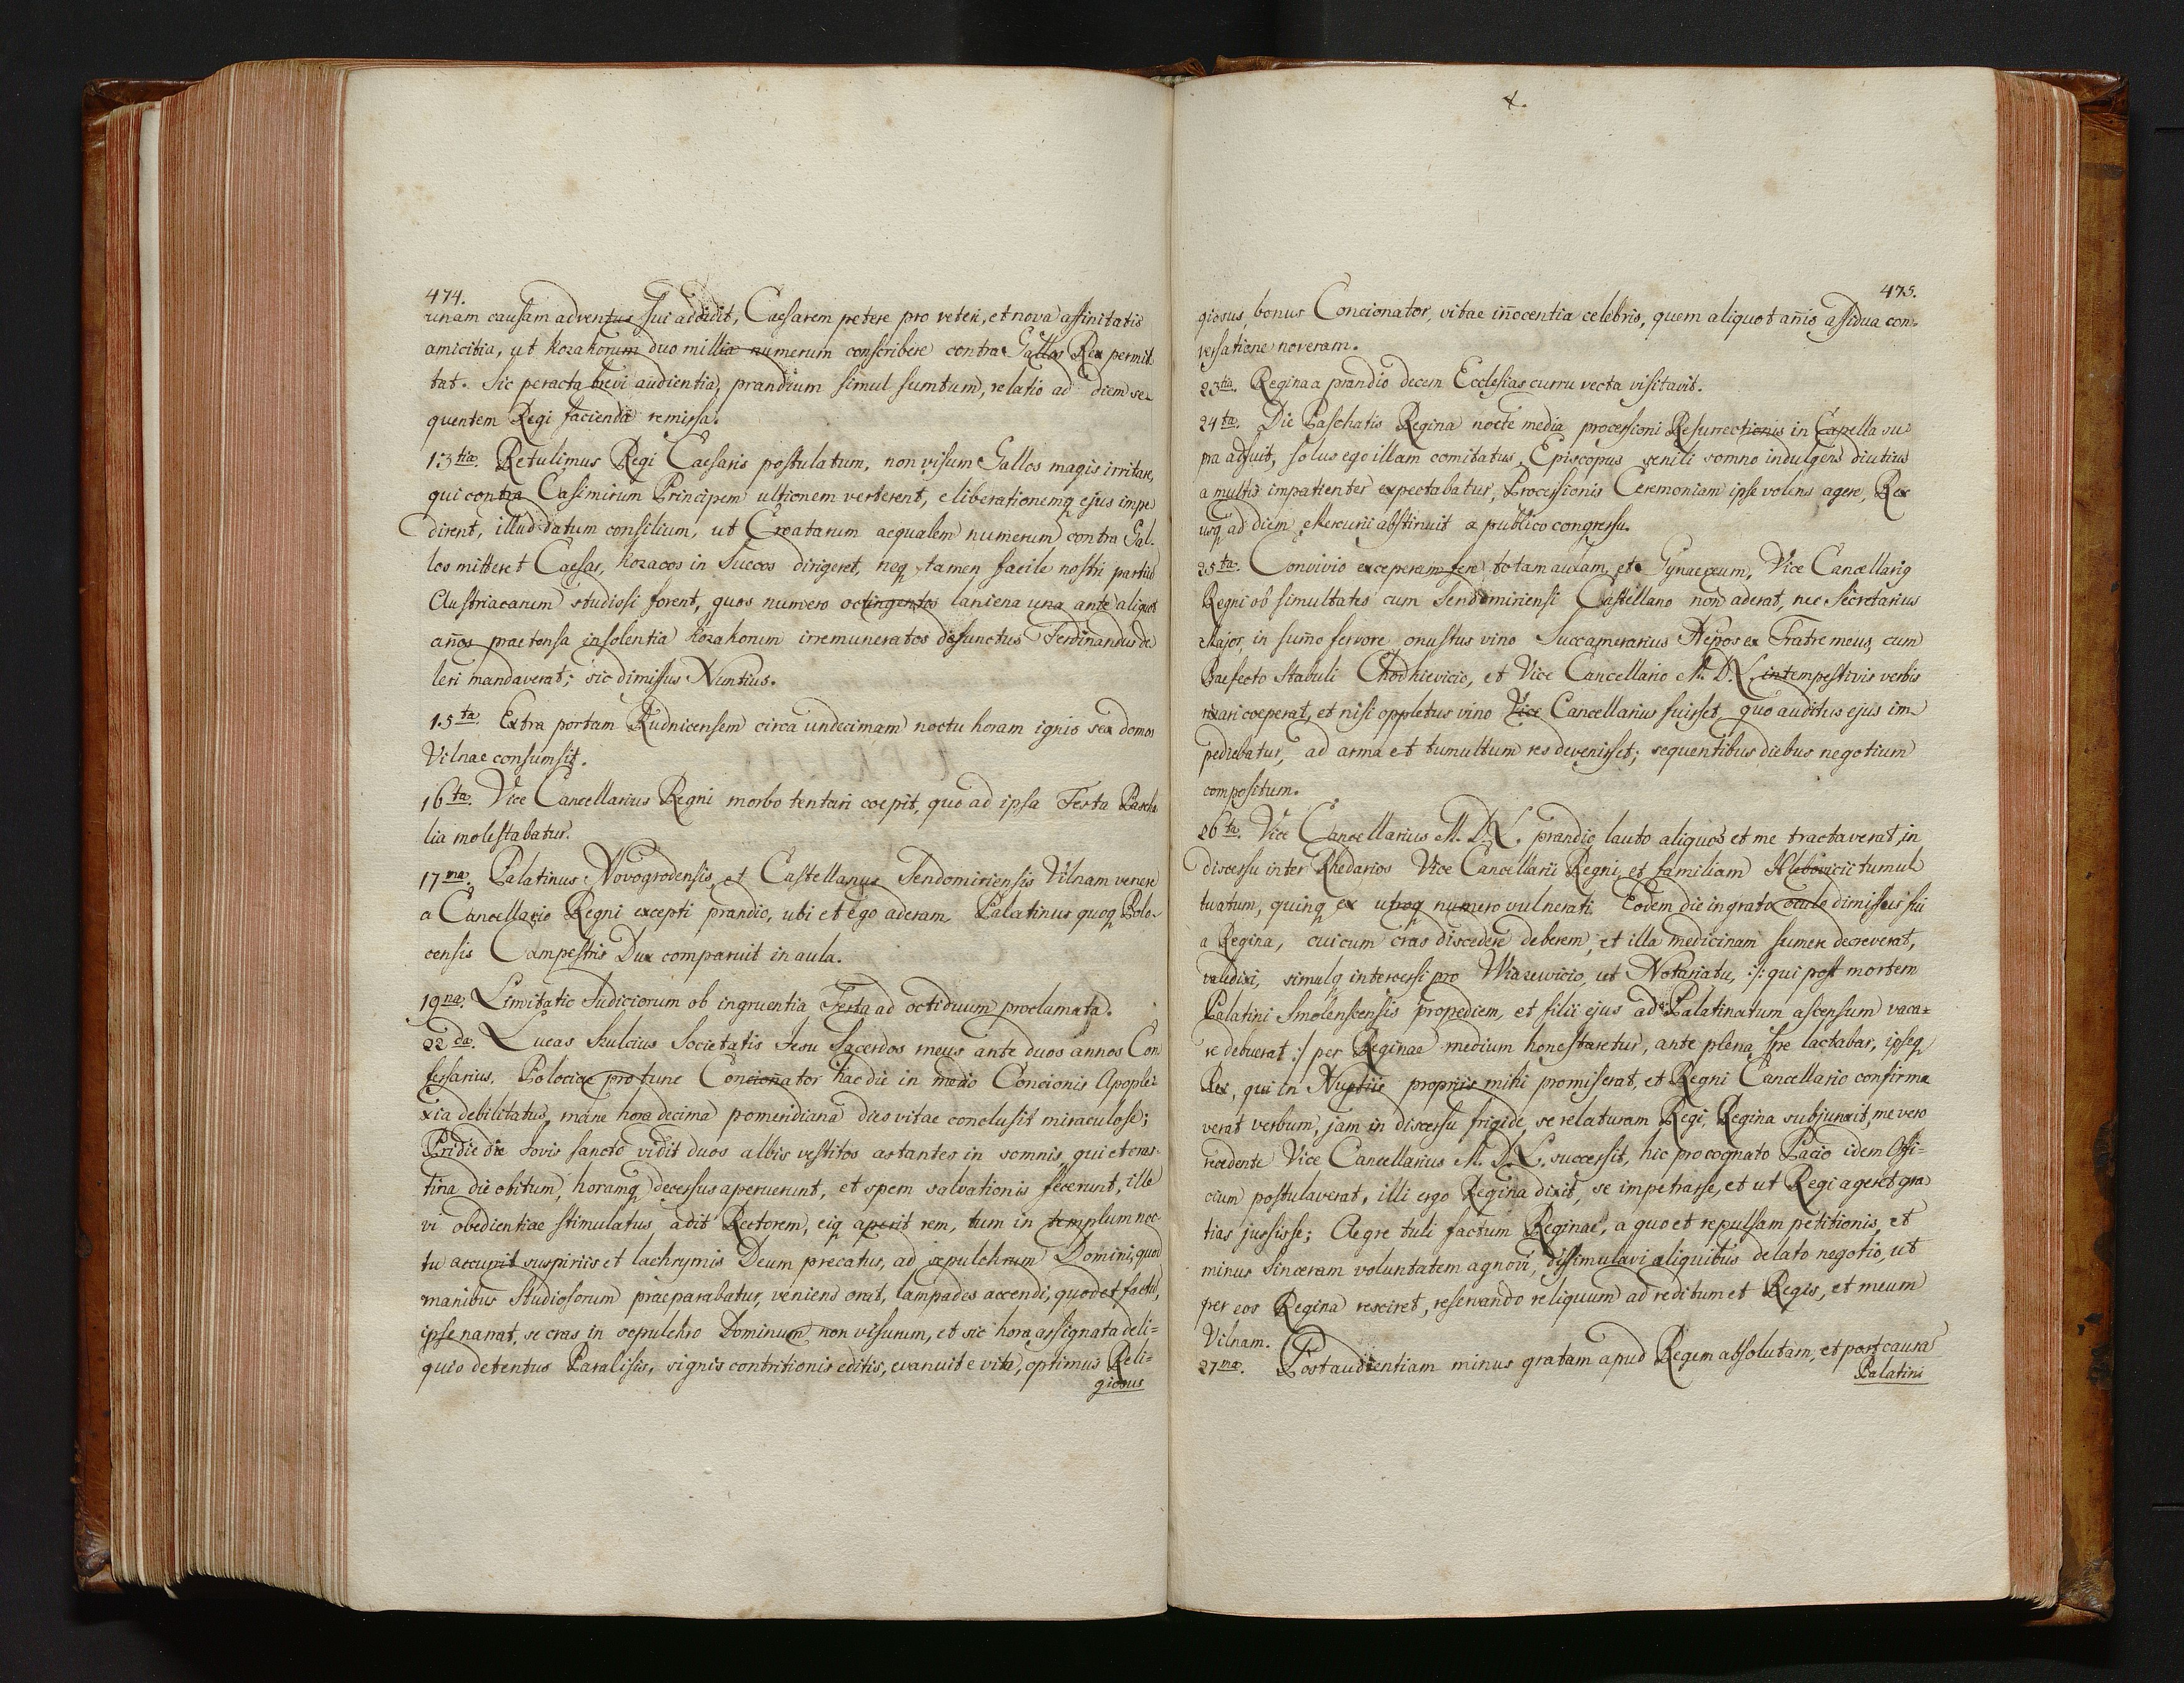 474.
unam causam adventus sui addidit, Caesarem petere pro veteri, et nova affinitatis
amicitia, ut Kozakorum duo millia numerum conscribere contra Gallos Rex permit
tat. Sic peracta brevi audientia, prandium simul sumtum, relatio ad diem se-
quentem Regi facienda remissa.
13tia. Retulimus Regi Caesaris postulatum, non visum Gallos magis irritare,
qui contra Casimirum Principem ultionem verterent, e liberationemq ejus impe
dirent, illud datum consilium, ut Croatarum aequalem numerum contra Gal-
los mitteret Caesar, Kozacos in Suecos dirigeret, neq tamen facile nostri partium
Austriacarum studiosi forent, quos numero octingentos laniena una ante aliquot
años praetensa insolentia Kozakorum irremuneratos defunctus Ferdinandus de
leri mandaverat; sic dimissus Nuntius.
15ta. Extra portam Rudnicensem circa undecimam noctu horam ignis sex domos
Vilnae consumsit.
16ta. Vice Cancellarius Regni morbo tentari coepit, quo ad ipsa Festa Pascha
lia molestabatur.
17ma. Palatinus Novogrodensis, et Castellanus Sendomiriensis Vilnam venere
a Cancellario Regni excepti prandio, ubi et ego aderam, Palatinus quoq Polo-
censis Campestris Dux comparuit in aula.
19na. Limitatio Judiciorum ob ingruentia Festa ad octiduum proclamata.
22da. Lucas Skulcius Societatis Jesu Sacerdos meus ante duos annos Con
fessarius, Polociae pro tunc Concionator hac die in medio Concionis Apople-
xia debilitatus, mane hora decima pomeridiana dies vitae conclusit miraculose;
Pridie die Jovis sancto vidit duos albis vestitos astantes in somnis, qui et cras-
tina die obitum, horamq decessus aperuerunt, et spem salvationis fecerunt, ille
vi obedientiae stimulatus adit Rectorem, eiq aperit rem, tum in templum noc
tu accurit suspiriis et lachrymis Deum precatus, ad sepulchrum Domini, quod
manibus Studiosorum praeparabatur, veniens orat, lampades accendi, quod et factu,
ipse narrat, se cras in sepulchro Dominum non visurum, et sic hora assignata deli=
quio detentus Paralisis, signis contritionis editis, evanuit e vita, optimus Reli=
giosus
475.
giosus, bonus Concionator, vitae iñocentia celebris, quem aliquot añis assidua con=
versatione noveram.
23tia. Regina a prandio decem Ecclesias curru vecta visitavit.
24ta. Die Paschatis Regina nocte media processioni Resurrectionis in Capella su
pra adfuit, solus ego illam comitatus, Episcopus senili somno indulgens diutius
a multis impatienter expectabatur, Processionis Ceremoniam ipse volens agere, Rex
usq ad diem Mercurii abstinuit a publico congressu.
25ta. Convivio exceperam fere totam aulam, et Gynaeceum, Vice Cancellarig
Regni ob simultates cum Sendomiriensi Castellano non aderat, nec Secretarius
Major, in sum̃o fervore onustus vino Succamerarius Nepos ex Fratre meus, cum
Praefecto Stabuli Chodkievicio, et Vice Cancellario M. D. L. intempestivis verbis
rixari coeperat, et nisi oppletus vino Vice Cancellarius fuisset, quo auditus ejus im-
pediebatur, ad arma et tumultum res devenisset; sequentibus diebus negotium
compositum.
26ta. Vice Cancellarius M. D. L. prandio lauto aliquos et me tractaverat, in
discessu inter Rhedarios Vice Cancellarii Regni, et familiam Hlebovicii tumul
tuatum, quinq ex utroq numero vulnerati. Eodem die ingrato oculo dimissus fui
a Regina, cui cum cras discedere deberem, et illa medicinam sumere decreverat,
valedixi, simulq intercessi pro Wiazewicio, ut Notariatu, :/: qui post mortem
Palatini Smolenscensis propediem, et filii ejus ad Palatinatum ascensum vaca=
re debuerat :/ per Reginae medium honestaretur, ante plena spe lactabar, ipseq
Rex, qui in Nuptiis propriis mihi promiserat, et Regni Cancellario confirma
verat verbum, jam in discessu frigide, se relaturam Regi, Regina subjunxit, me vero
recedente Vice Cancellarius M. D. L. successit, hic pro cognato Pacio idem Offi-
cium postulaverat, illi ergo Regina dixit, se impetrasse, et ut Regi ageret gra
tias jussisse; Aegre tuli factum Reginae, a quo et repulsam petitionis, et
minus sinceram voluntatem agnovi, dissimulavi aliquibus delato negotio, ut
per eos Regina resciret, reservando reliquum ad reditum et Regis, et meum
Vilnam.
27ma. Post audientiam minus gratam apud Regem absolutam, et post causa
Palatini